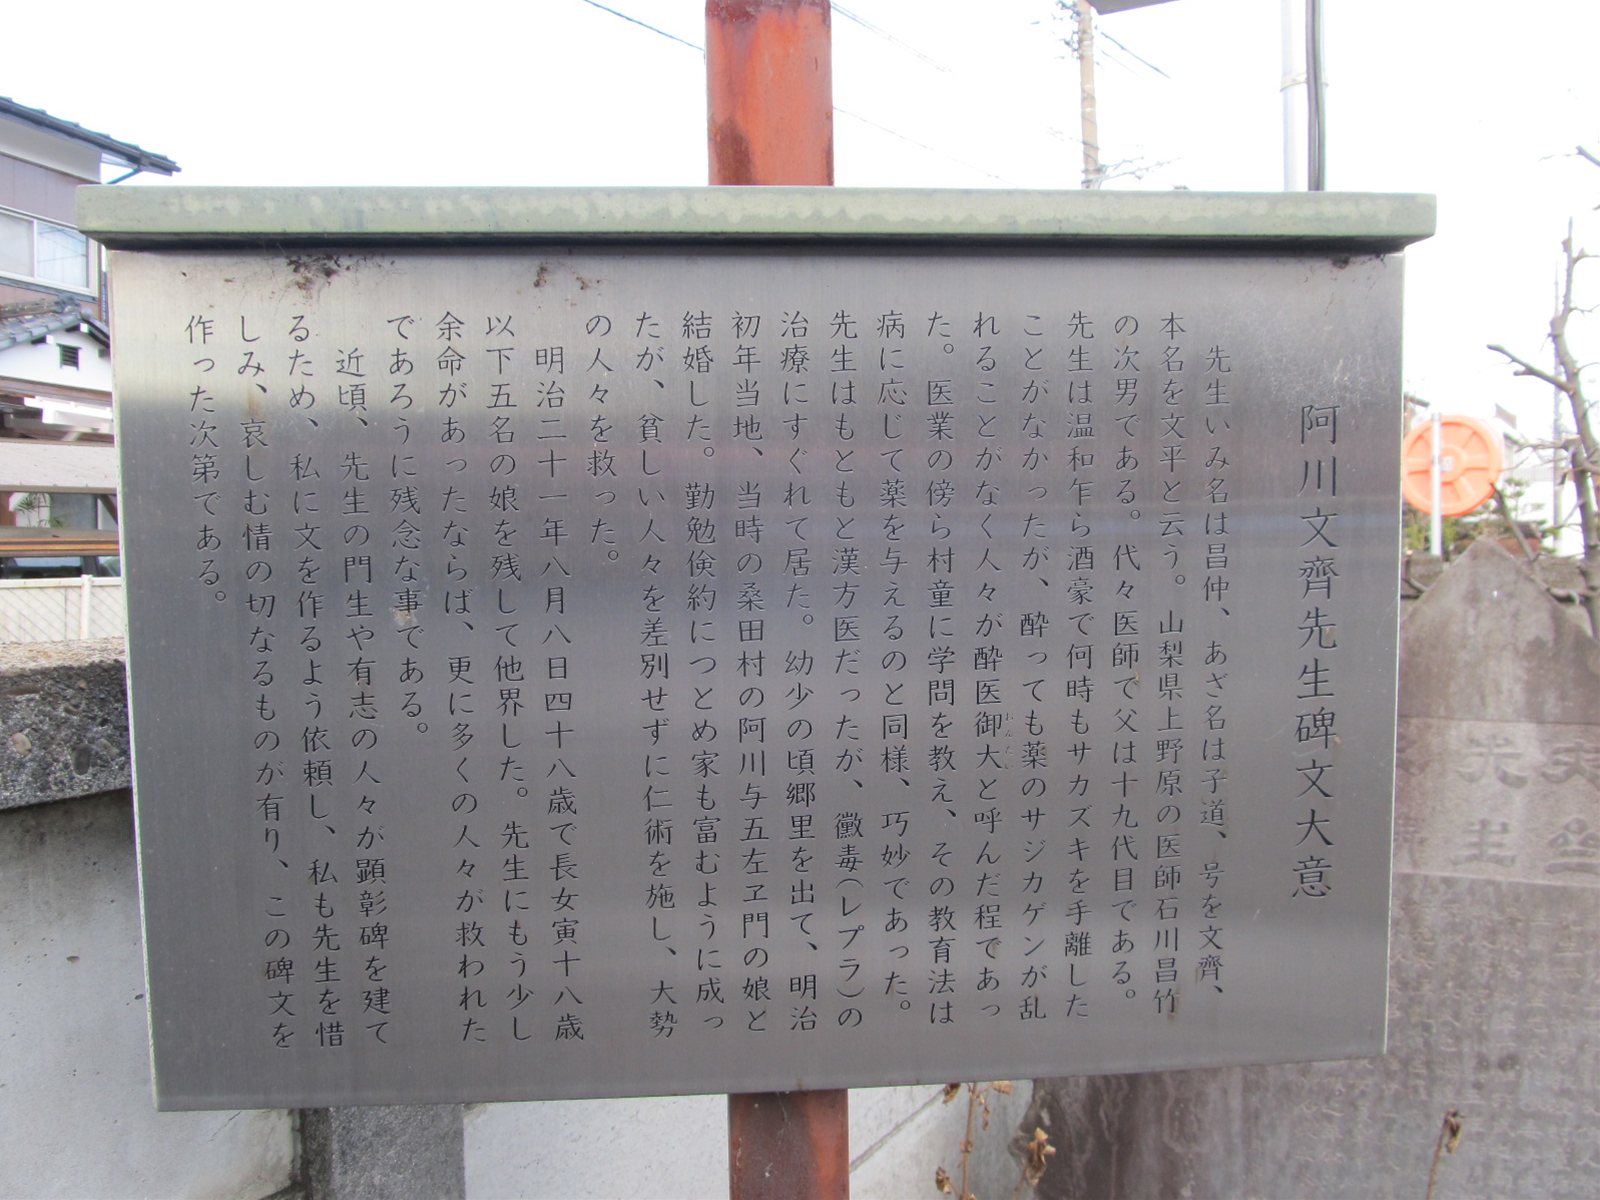 阿川文齊先生碑文大意
先生いみ名は昌仲、あざ名は子道、号を文齊、
本名を文平と云う。山梨県上野原の医師石川昌竹
の次男である。代々医師で父は十九代目である。
先生は温和乍ら酒豪で何時もサカズキを手離した
ことがなかったが、酔っても薬のサジカゲンが乱
れることがなく人々が酔医御大と呼んだ程であっ
おんたい
た。医業の傍ら村童に学問を教え、その教育法は
病に応じて薬を与えるのと同様、巧妙であった。
先生はもともと漢方医だったが、黴毒(レプラ)の
治療にすぐれて居た。幼少の頃郷里を出て、明治
初年当地、当時の桑田村の阿川与五左ヱ門の娘と
結婚した。勤勉倹約につとめ家も富むように成っ
たが、貧しい人々を差別せずに仁術を施し、大勢
の人々を救った。
明治二十一年八月八日四十八歳で長女寅十八歳
以下五名の娘を残して他界した。先生にもう少し
余命があったならば、更に多くの人々が救われた
であろうに残念な事である。
近頃、先生の門生や有志の人々が顕彰碑を建て
るため、私に文を作るよう依頼し、私も先生を惜
しみ、哀しむ情の切なるものが有り、この碑文を
作った次第である。